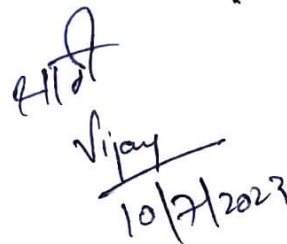 Vijay
10/7/2023